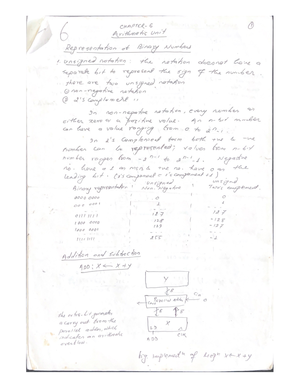 6
CHAPTER-6
①
Arithmetic Unit
Representation of Binary Numbers
Unsigned notation: The notation does not have a
separate bit to represent the sign of the number.
There are two unsigned notation
① non-negative notation
② 2's complement
In non-negative notation, every number is
either zero or a positive value. An n-bit number
can have a value ranging from 0 to 2ⁿ-1.
In 2's complement form both +ve & -ve
number can be represented; values from n-bit
number ranges from -2ⁿ⁻¹ to 2ⁿ⁻¹-1. Negative
no. have a 1 as msb & +ve no. have 0 as the
leading bit.
Binary representation unsigned Non negative unsigned Two's complement
0000 0000 0 0
0000 0001 1 1
0111 1111 127 127
1000 0000 128 -128
1000 0001 129 -127
1111 1111 255 -1
Addition and Subtraction
ADD: X ← X + Y
Y
Parallel adder
X
The extra bit generates
a carry out from the
parallel adder, which
indicates an arithmetic
overflow
LD
CLK
ADD
fig: implementⁿ of X ← X + Y